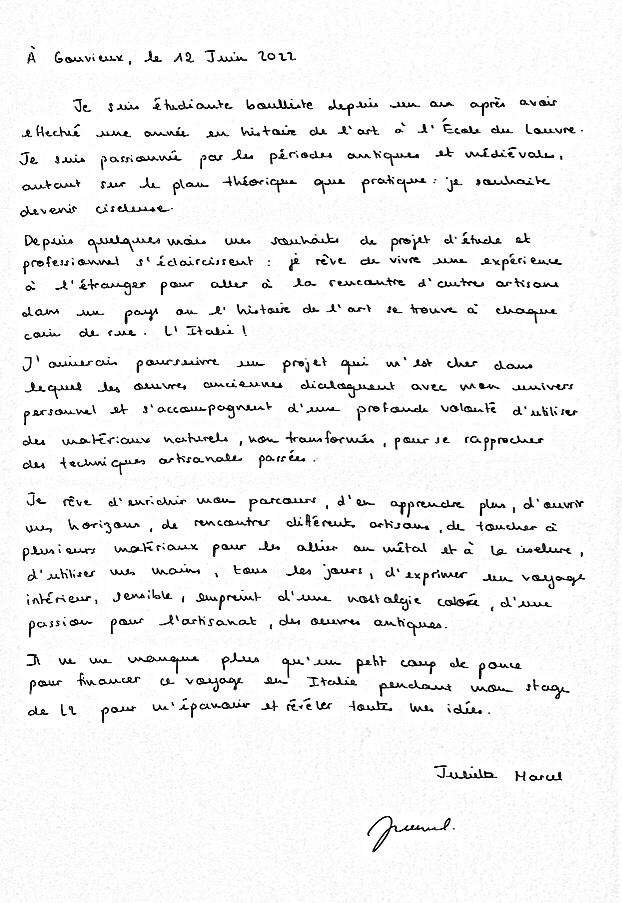 À Gouvieux, le 12 Juin 2022
Je suis étudiante boulliste depuis un an après avoir
effectué une année en histoire de l'art à l'École du Louvre.
Je suis passionnée par les périodes antiques et médiévales,
autant sur le plan théorique que pratique : je souhaite
devenir ciseleuse.
Depuis quelques mois mes souhaits de projet d'étude et
professionnel s'éclaircissent : je rêve de vivre une expérience
à l'étranger pour aller à la rencontre d'autres artisans
dans un pays ou l'histoire de l'art se trouve à chaque
coin de rue. L'Italie !
J'aimerais poursuivre un projet qui m'est cher dans
lequel les œuvres anciennes dialoguent avec mon univers
personnel et s'accompagnent d'une profonde volonté d'utiliser
des matériaux naturels, non transformés, pour se rapprocher
des techniques artisanales passées.
Je rêve d'enrichir mon parcours, d'en apprendre plus, d'ouvrir
mes horizons, de rencontrer différents artisans, de toucher à
plusieurs matériaux pour les allier au métal et à la ciselure,
d'utiliser mes mains, tous les jours, d'exprimer un voyage
intérieur, sensible, empreint d'une nostalgie colorée, d'une
passion pour l'artisanat, des œuvres antiques.
Il ne me manque plus qu'un petit coup de pouce
pour financer ce voyage en Italie pendant mon stage
de L2 pour m'épanouir et révéler toutes mes idées.
Juliette Marcel